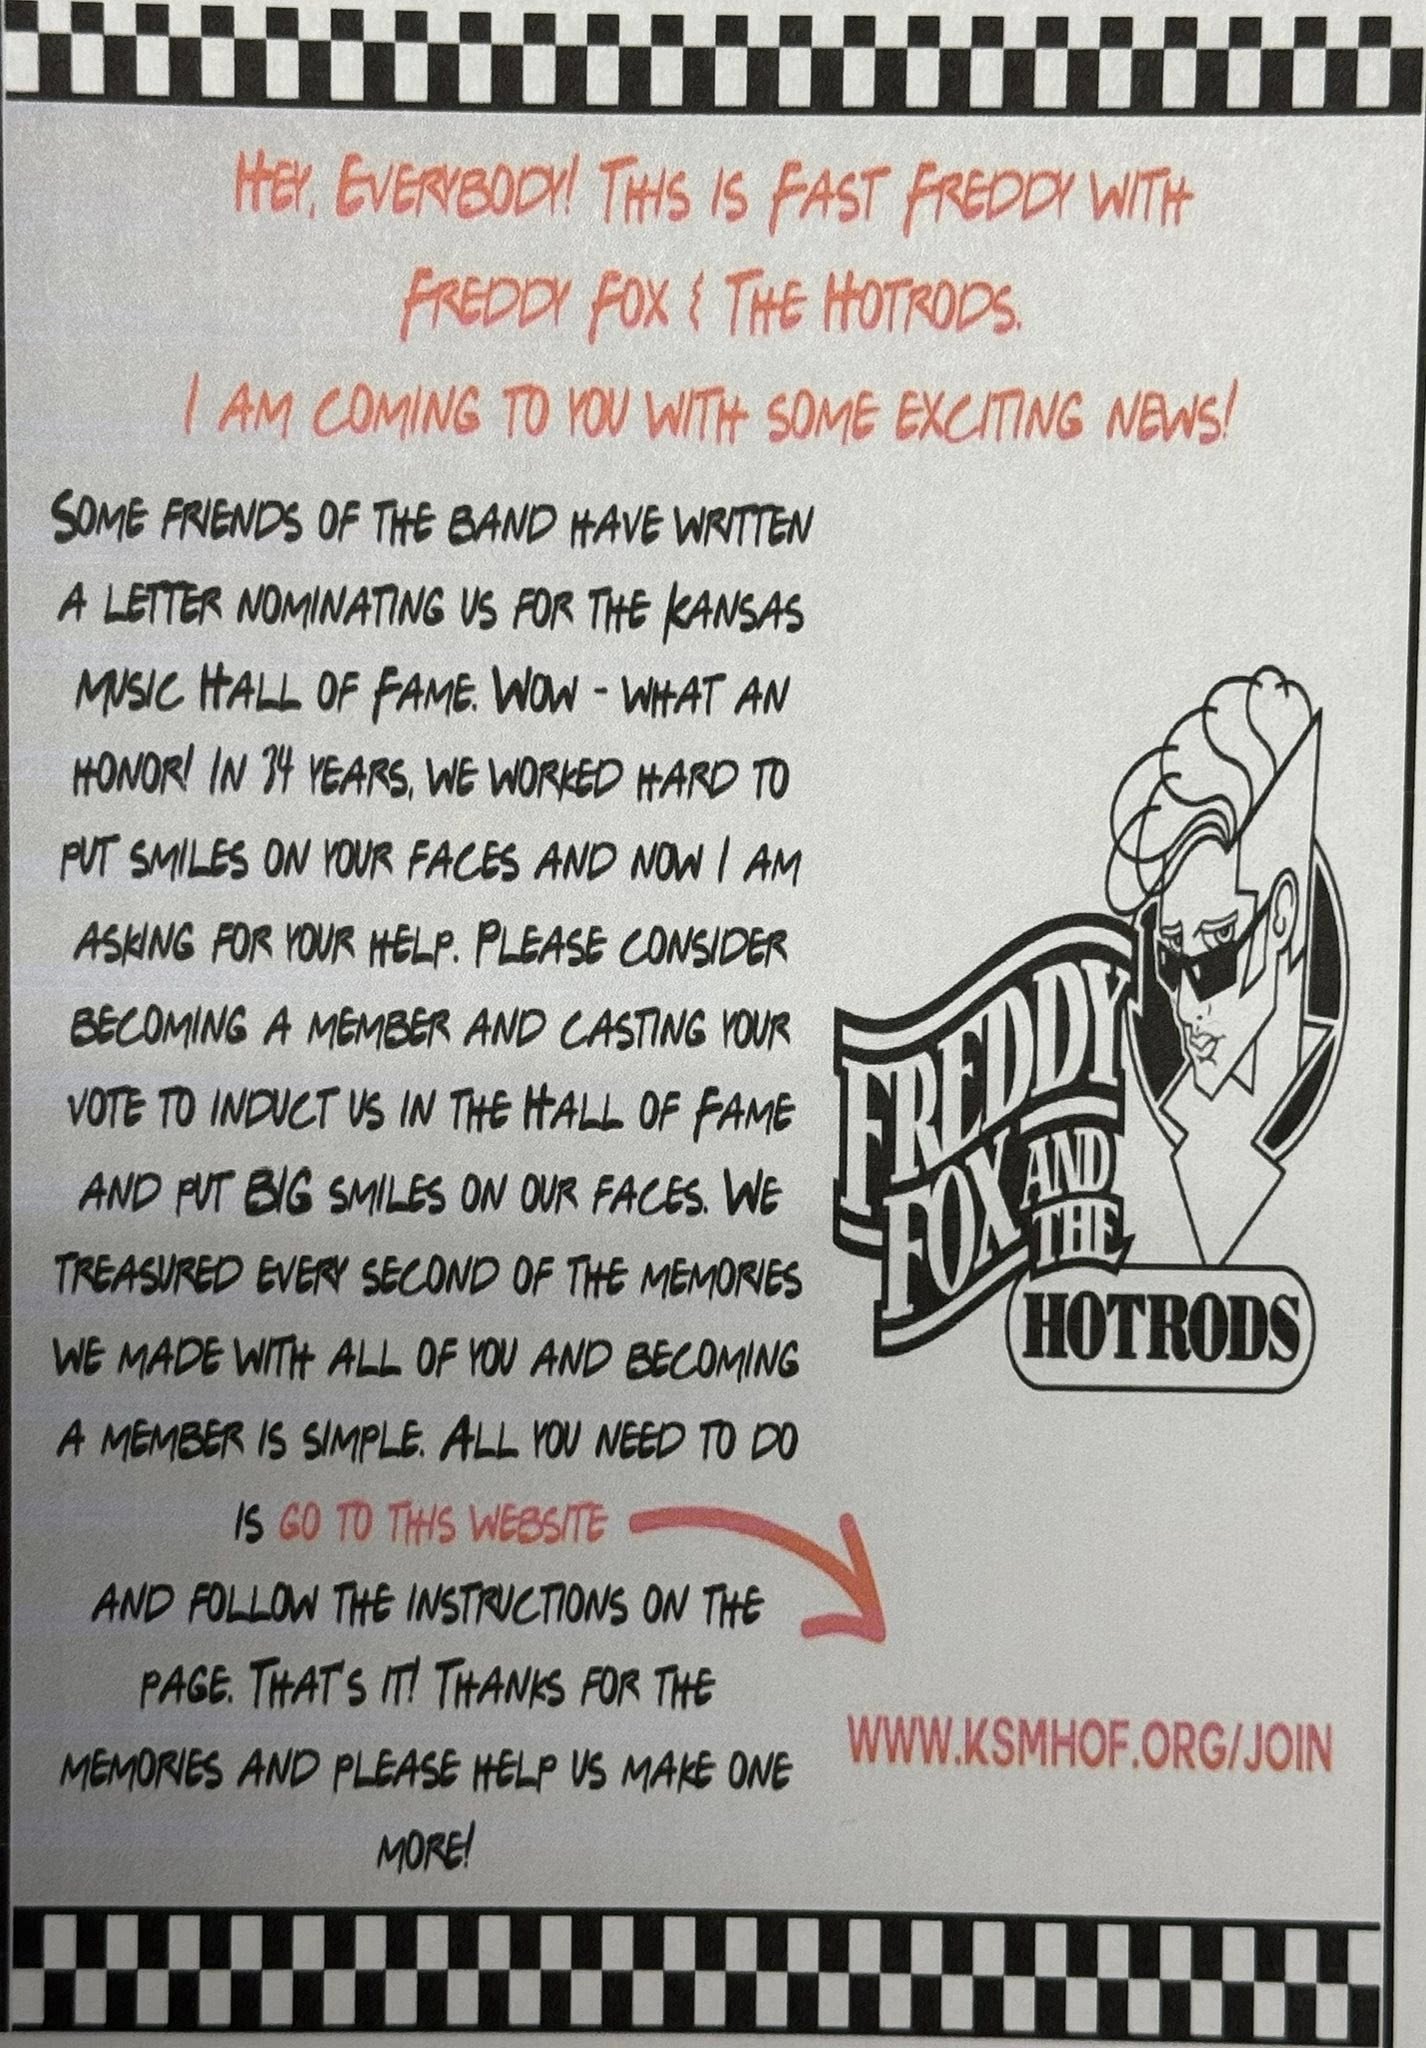 HEY, EVERYBODY! THIS IS FAST FREDDY WITH
FREDDY FOX & THE HOTRODS.
I AM COMING TO YOU WITH SOME EXCITING NEWS!
SOME FRIENDS OF THE BAND HAVE WRITTEN
A LETTER NOMINATING US FOR THE KANSAS
MUSIC HALL OF FAME. WOW - WHAT AN
HONOR! IN 34 YEARS, WE WORKED HARD TO
PUT SMILES ON YOUR FACES AND NOW I AM
ASKING FOR YOUR HELP. PLEASE CONSIDER
BECOMING A MEMBER AND CASTING YOUR
VOTE TO INDUCT US IN THE HALL OF FAME
AND PUT BIG SMILES ON OUR FACES. WE
TREASURED EVERY SECOND OF THE MEMORIES
WE MADE WITH ALL OF YOU AND BECOMING
A MEMBER IS SIMPLE. ALL YOU NEED TO DO
IS GO TO THIS WEBSITE
AND FOLLOW THE INSTRUCTIONS ON THE
PAGE. THAT'S IT! THANKS FOR THE
MEMORIES AND PLEASE HELP US MAKE ONE
MORE!
FREDDY
FOX AND
THE
HOTRODS
WWW.KSMHOF.ORG/JOIN